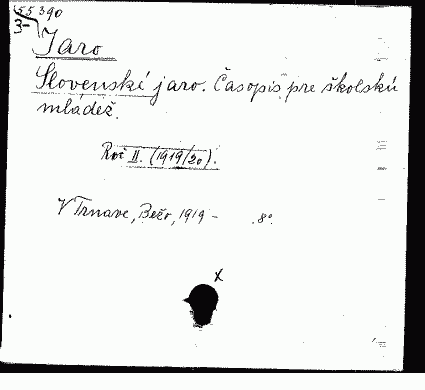 55390
3-
Jaro
Slovenské jaro. Časopis pre školskú
mládež.
Roč II. (1919/20).
V Trnave, Bežo, 1919 - 8°.
x